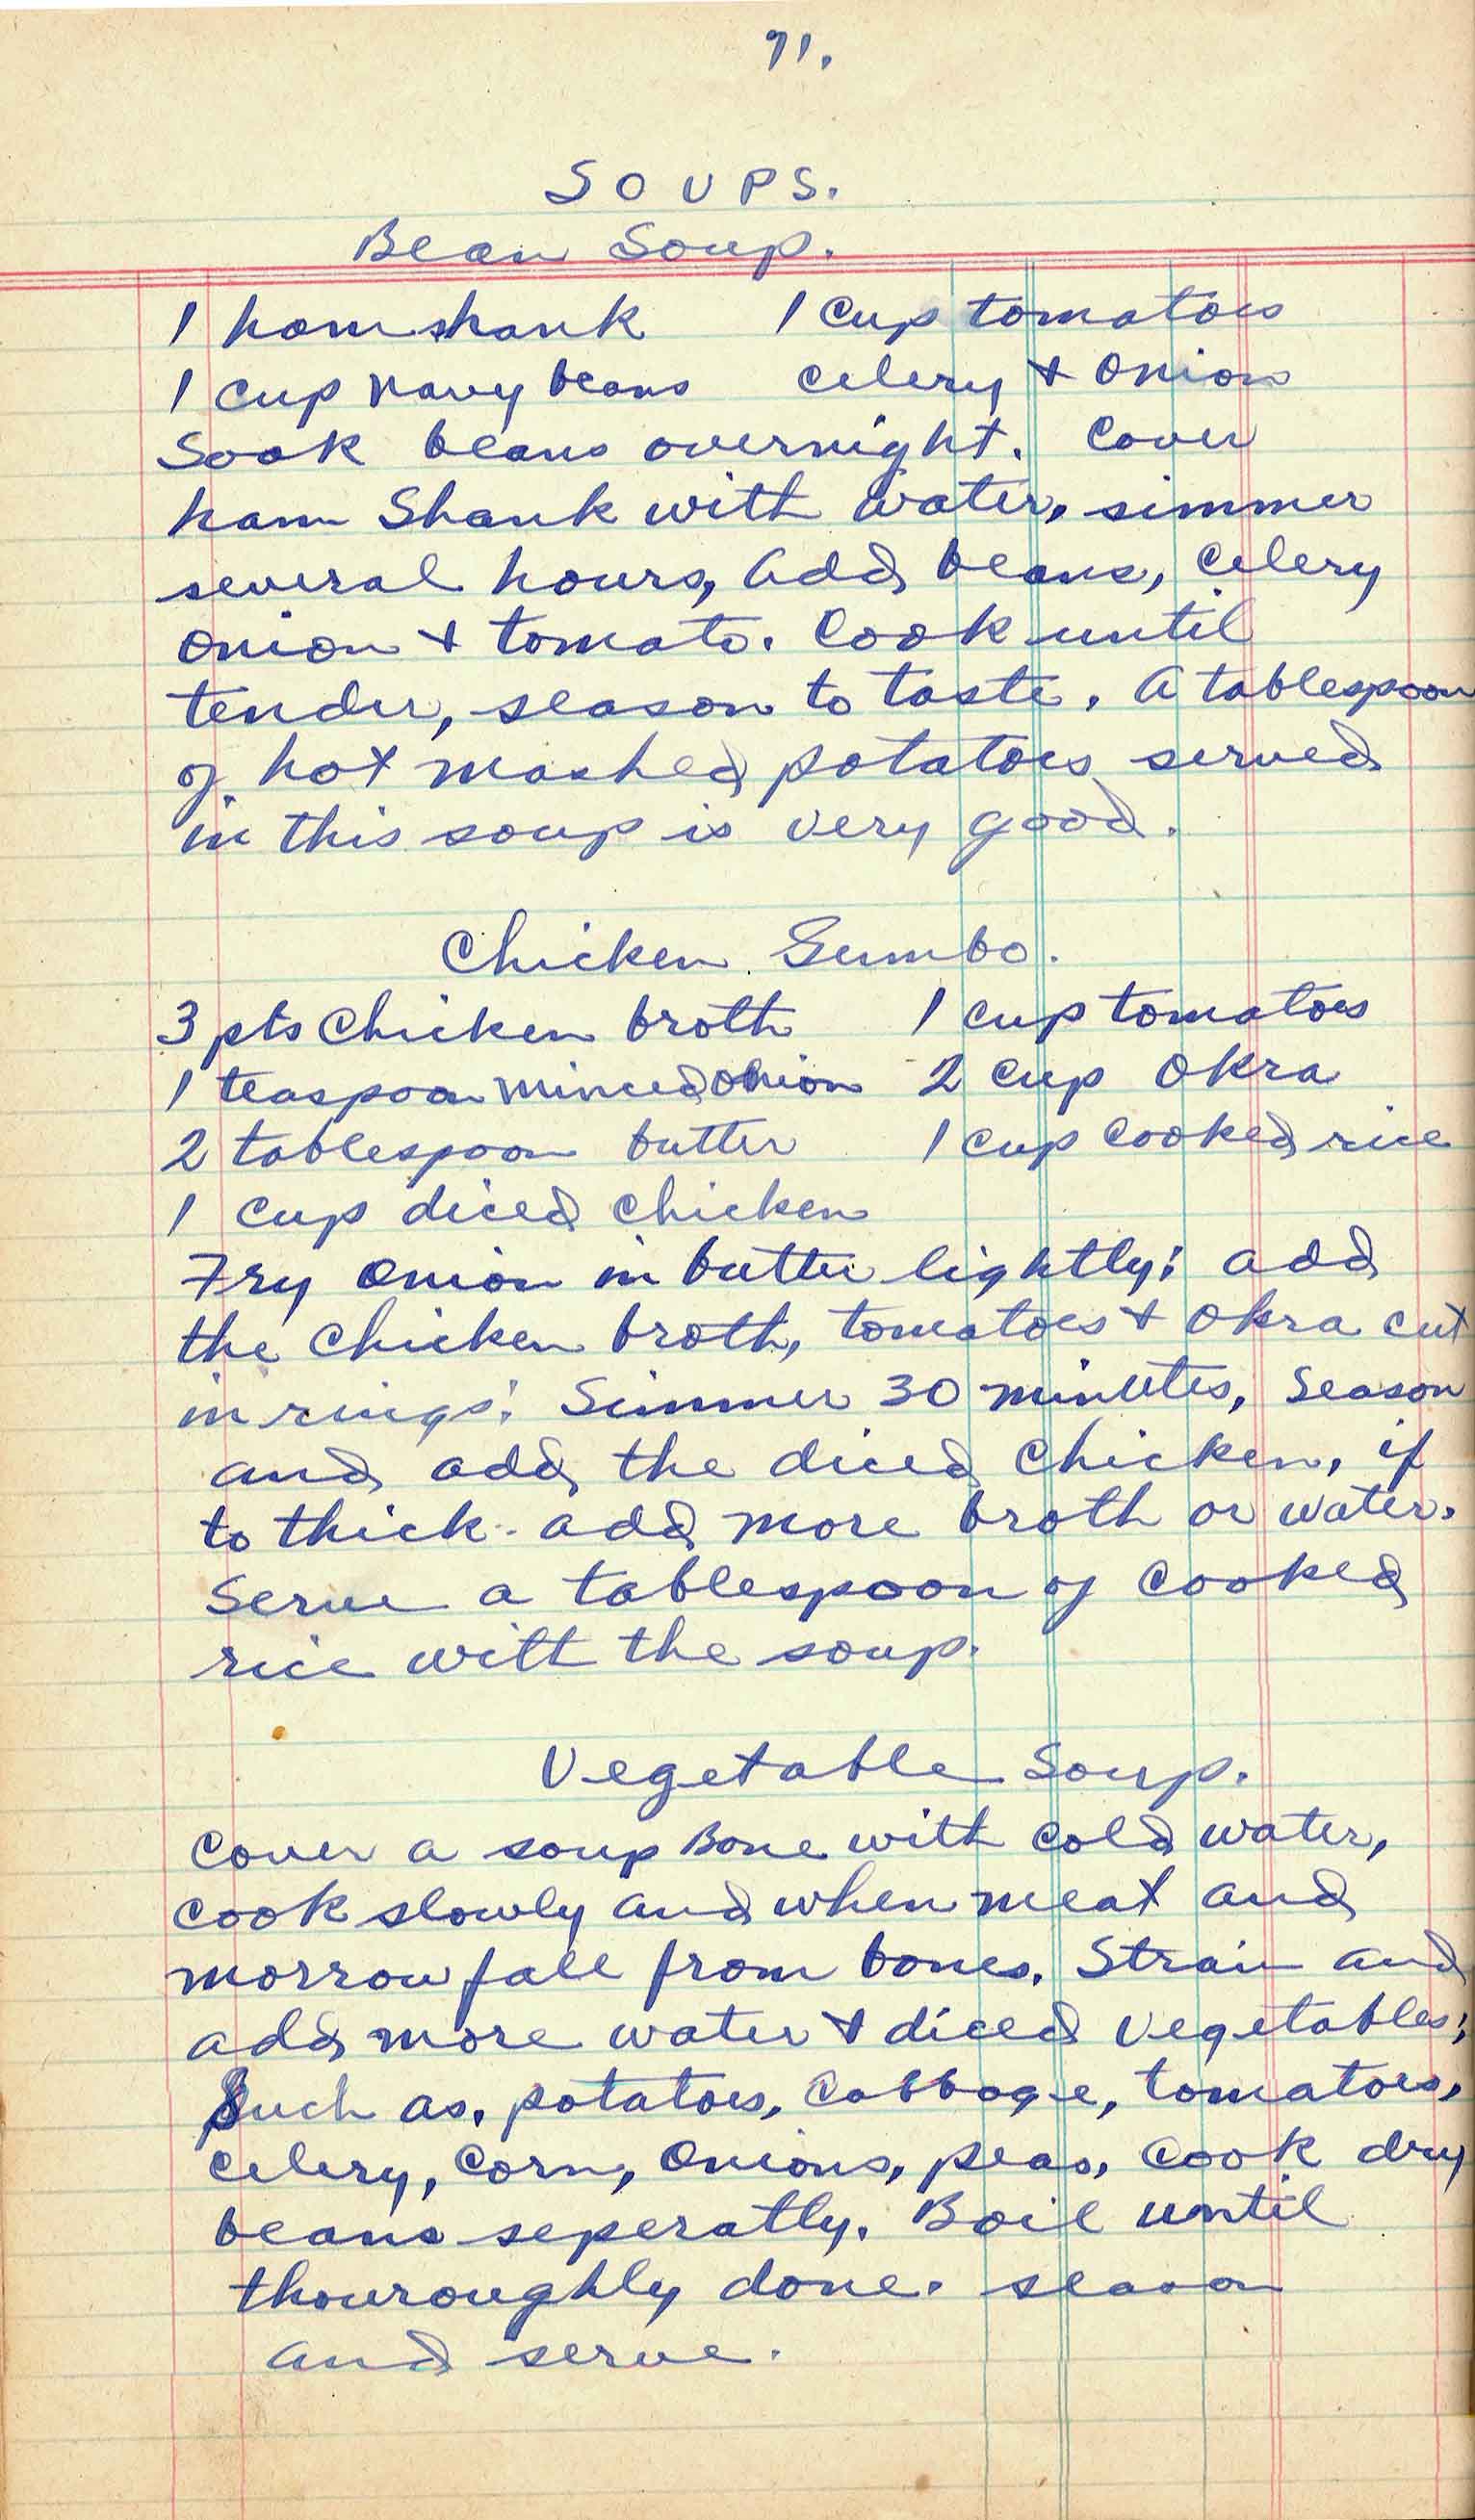 71.
SOUPS.
Bean Soup.
1 ham shank 1 cup tomatoes
1 cup navy beans celery + onion
Soak beans overnight. Cover
ham Shank with water, simmer
several hours, add beans, celery
onion + tomato. Cook until
tender, season to taste. A tablespoon
of hot mashed potatoes served
in this soup is very good.
Chicken Gumbo.
3 pts chicken broth 1 cup tomatoes
1 teaspoon minced onion 2 cup Okra
2 tablespoon butter 1 cup cooked rice
1 cup diced chicken
Fry onion in butter lightly; add
the chicken broth, tomatoes + okra cut
in rings; Simmer 30 minutes, Season
and add the diced chicken, if
to thick add more broth or water.
Serve a tablespoon of cooked
rice with the soup.
Vegetable Soup.
Cover a soup Bone with cold water,
cook slowly and when meat and
morrow fall from bones. Strain and
add more water + diced vegetables;
Such as, potatoes, cabbage, tomatoes,
celery, corn, onions, peas, cook dry
beans seperatly. Boil until
thouroughly done. season
and serve.